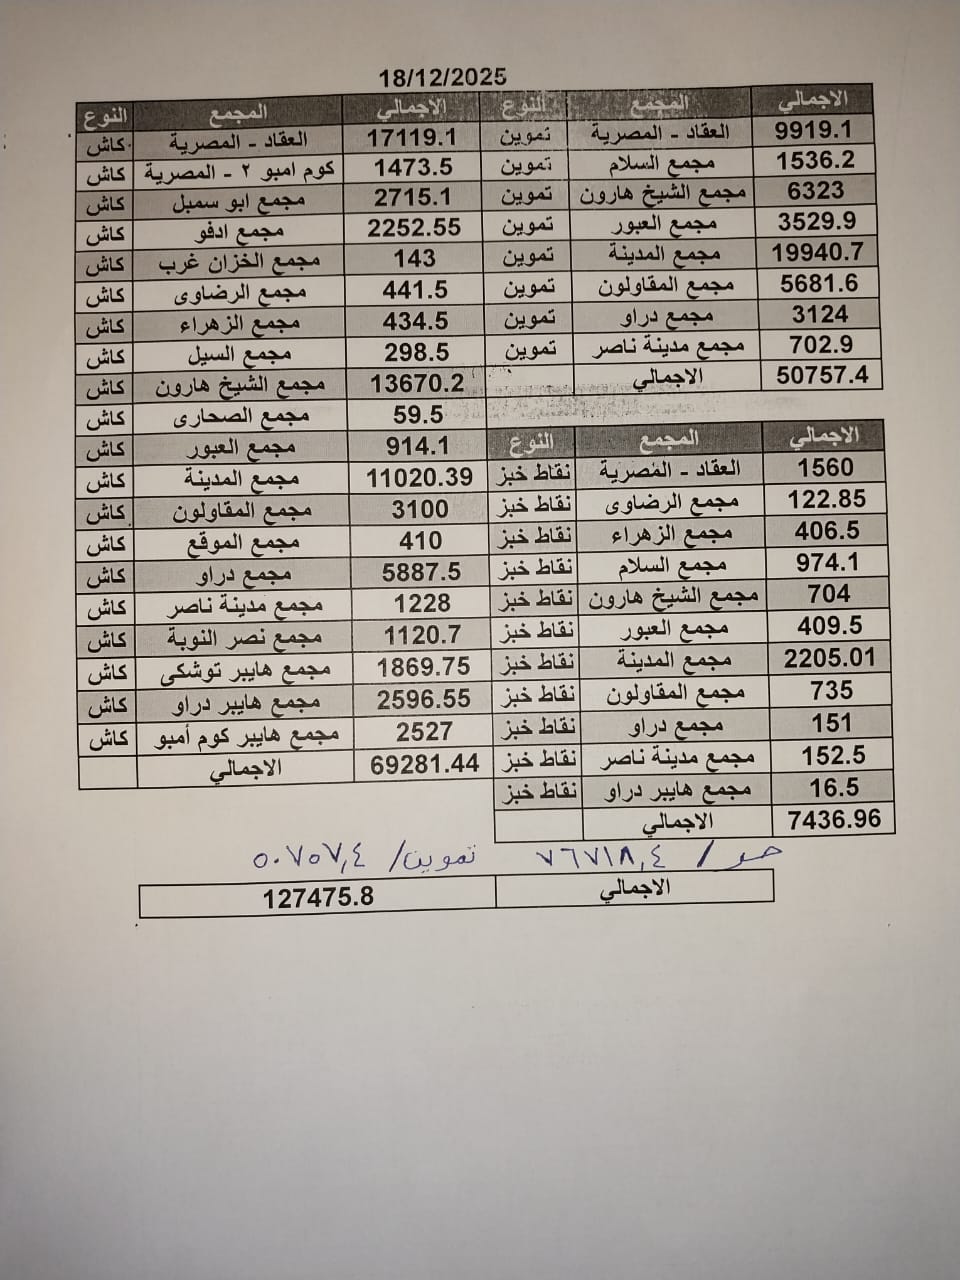 18/12/2025
النوع المجمع الاجمالي النوع المجمع الاجمالي
كاش العقاد - المصرية 17119.1 تموين العقاد - المصرية 9919.1
كاش كوم امبو ٢ - المصرية 1473.5 تموين مجمع السلام 1536.2
كاش مجمع ابو سمبل 2715.1 تموين مجمع الشيخ هارون 6323
كاش مجمع ادفو 2252.55 تموين مجمع العبور 3529.9
كاش مجمع الخزان غرب 143 تموين مجمع المدينة 19940.7
كاش مجمع الرضاوى 441.5 تموين مجمع المقاولون 5681.6
كاش مجمع الزهراء 434.5 تموين مجمع دراو 3124
كاش مجمع السيل 298.5 تموين مجمع مدينة ناصر 702.9
كاش مجمع الشيخ هارون 13670.2 الاجمالي 50757.4
كاش مجمع الصحارى 59.5
كاش مجمع العبور 914.1 النوع المجمع الاجمالي
كاش مجمع المدينة 11020.39 نقاط خبز العقاد - المصرية 1560
كاش مجمع المقاولون 3100 نقاط خبز مجمع الرضاوى 122.85
كاش مجمع الموقع 410 نقاط خبز مجمع الزهراء 406.5
كاش مجمع دراو 5887.5 نقاط خبز مجمع السلام 974.1
كاش مجمع مدينة ناصر 1228 نقاط خبز مجمع الشيخ هارون 704
كاش مجمع نصر النوبة 1120.7 نقاط خبز مجمع العبور 409.5
كاش مجمع هايبر توشكى 1869.75 نقاط خبز مجمع المدينة 2205.01
كاش مجمع هايبر دراو 2596.55 نقاط خبز مجمع المقاولون 735
كاش مجمع هايبر كوم أمبو 2527 نقاط خبز مجمع دراو 151
الاجمالي 69281.44 نقاط خبز مجمع مدينة ناصر 152.5
نقاط خبز مجمع هايبر دراو 16.5
الاجمالي 7436.96
حر / ٧٦٧١٨,٤ تموين / ٥٠٧٥٧,٤
الاجمالي 127475.8